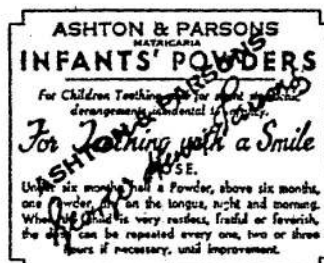 ASHTON & PARSONS
MATRICARIA
INFANTS' POWDERS
For Children Teething and for
derangements incidental to
For Teething with a Smile
DOSE.
Under six months half a Powder, above six months,
one Powder, dry on the tongue, night and morning.
When the Child is very restless, fretful or feverish,
the dose can be repeated every one, two or three
hours if necessary, until improvement.
ASHTON & PARSONS